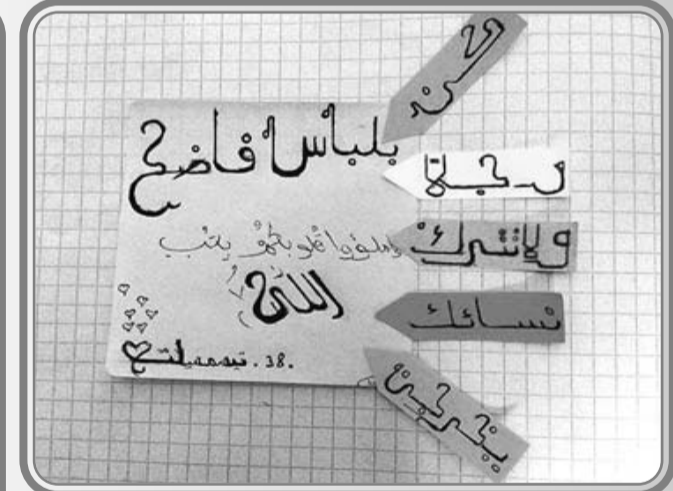 كن
رجلا
ولاتترك
نسائك
يخرجن
بلباس فاضح
واملؤوا قلوبكم بحب
الله
تيسمسيلت .38.